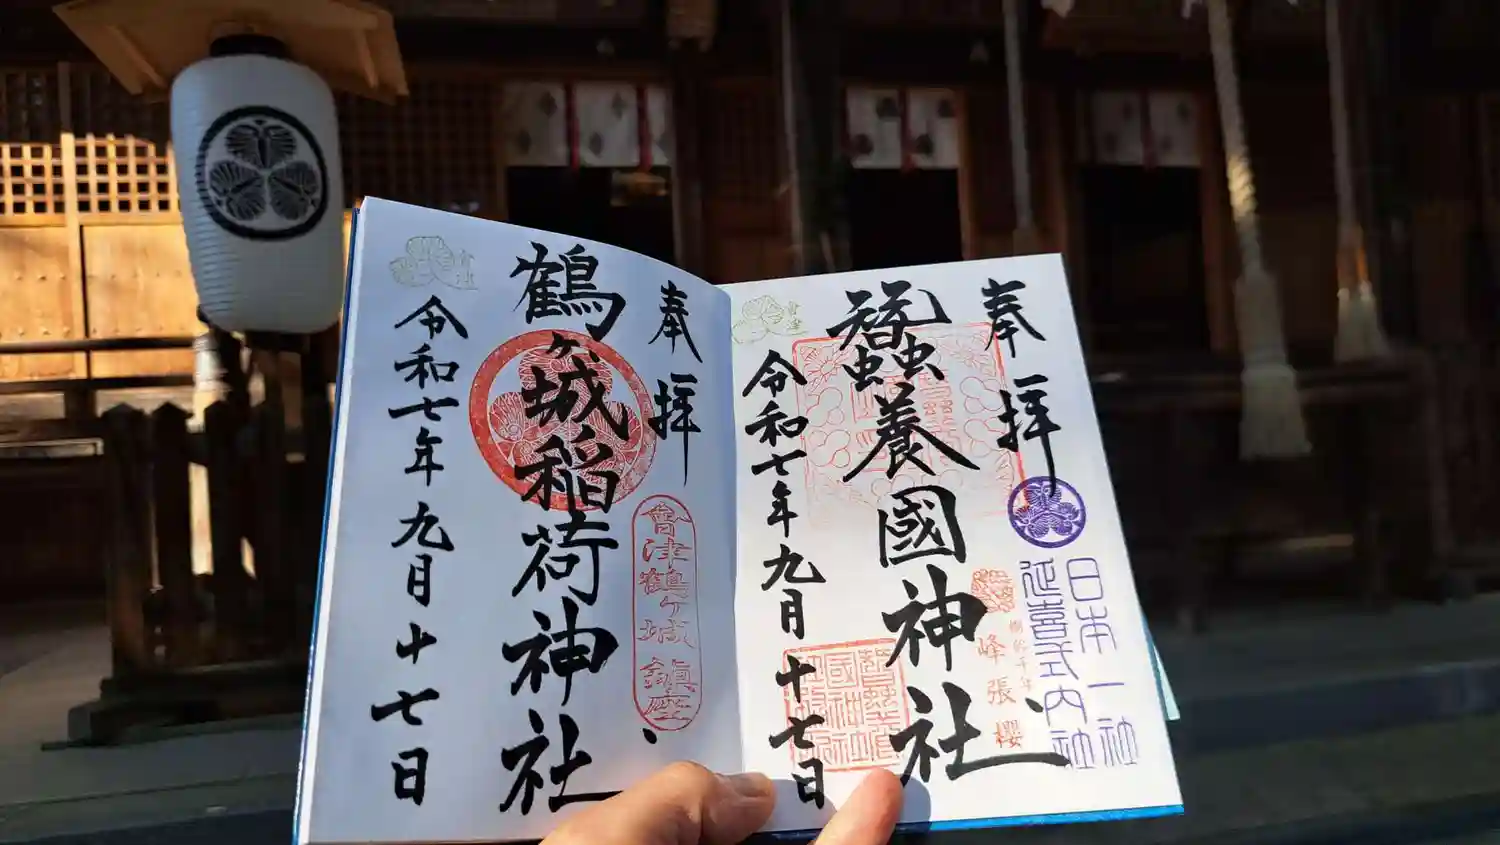 奉拝
日本一社
延喜式内社
峰張櫻
蠶養國神社
令和七年九月十七日
会津
奉拝
會津鶴ヶ城鎮座
鶴ヶ城稲荷神社
令和七年九月十七日
会津